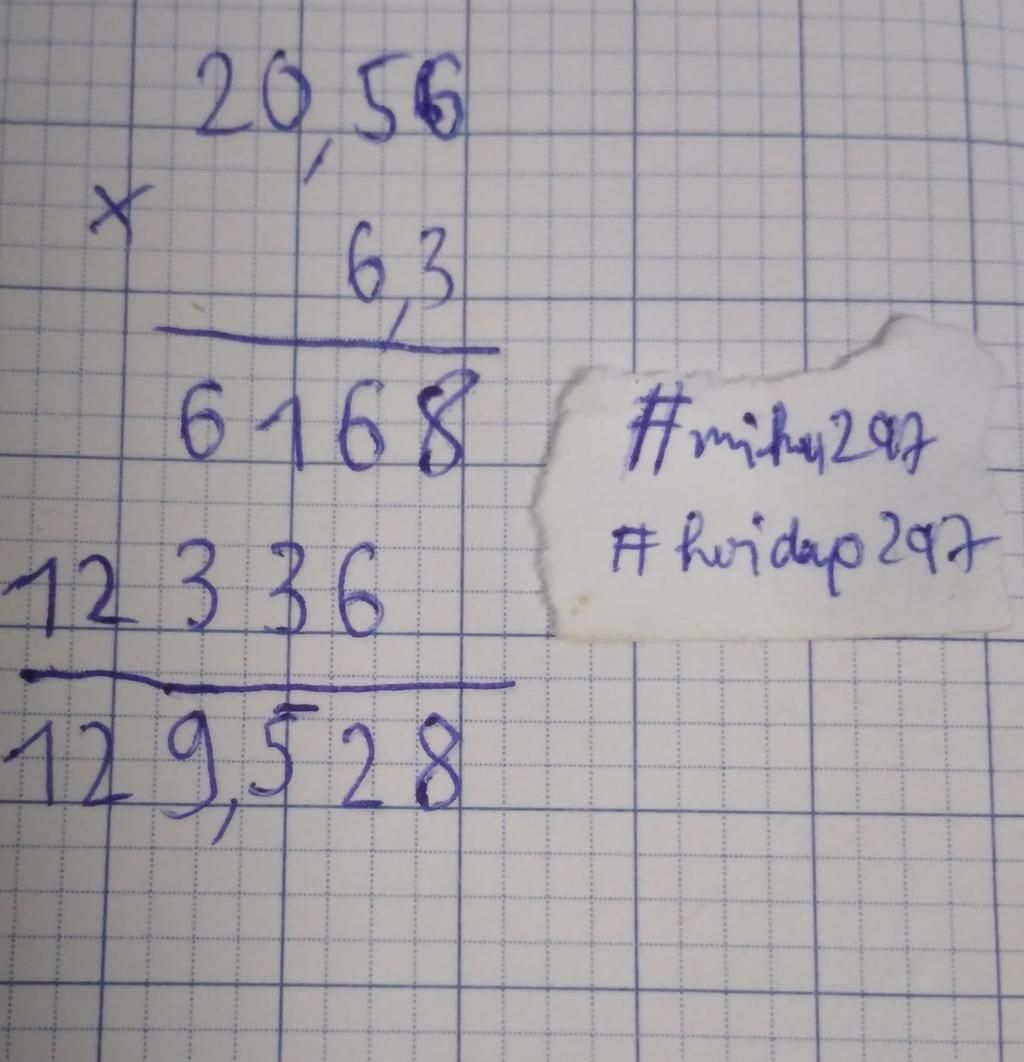 20,56
×
6,3
6168
12336
129,528
#mihu297
#hoidap297